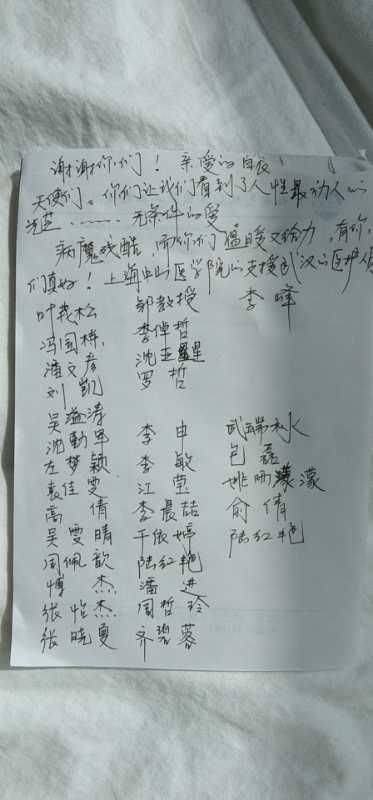 谢谢你们！亲爱的白衣
天使们。你们让我们看到了人性最动人的
光芒……无条件的爱
病魔残酷，而你们温暖又给力，有你
们真好！上海中山医学院的支援武汉的医护人
叶茂松 邹教授 李峰
冯国栋 李倬哲
潘文彦 沈亚星
刘凯 罗哲
吴溢涛
沈勤军 李申 武瑞秋
左梦颖 李敏 包磊
袁佳雯 江莹 姚雨濛
高倩 李晨喆 俞倩
吴雯晴 干依婷 陆红艳
周佩歆 陆红艳
傅杰 潘进
张怡杰 周哲玲
张晓夏 齐碧蓉